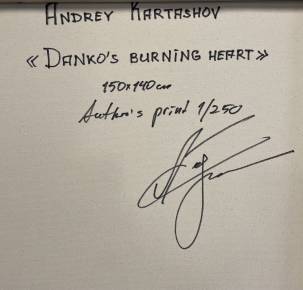 ANDREY KARTASHOV
« DANKO'S BURNING HEART »
150x140cm
Author's print 1/250